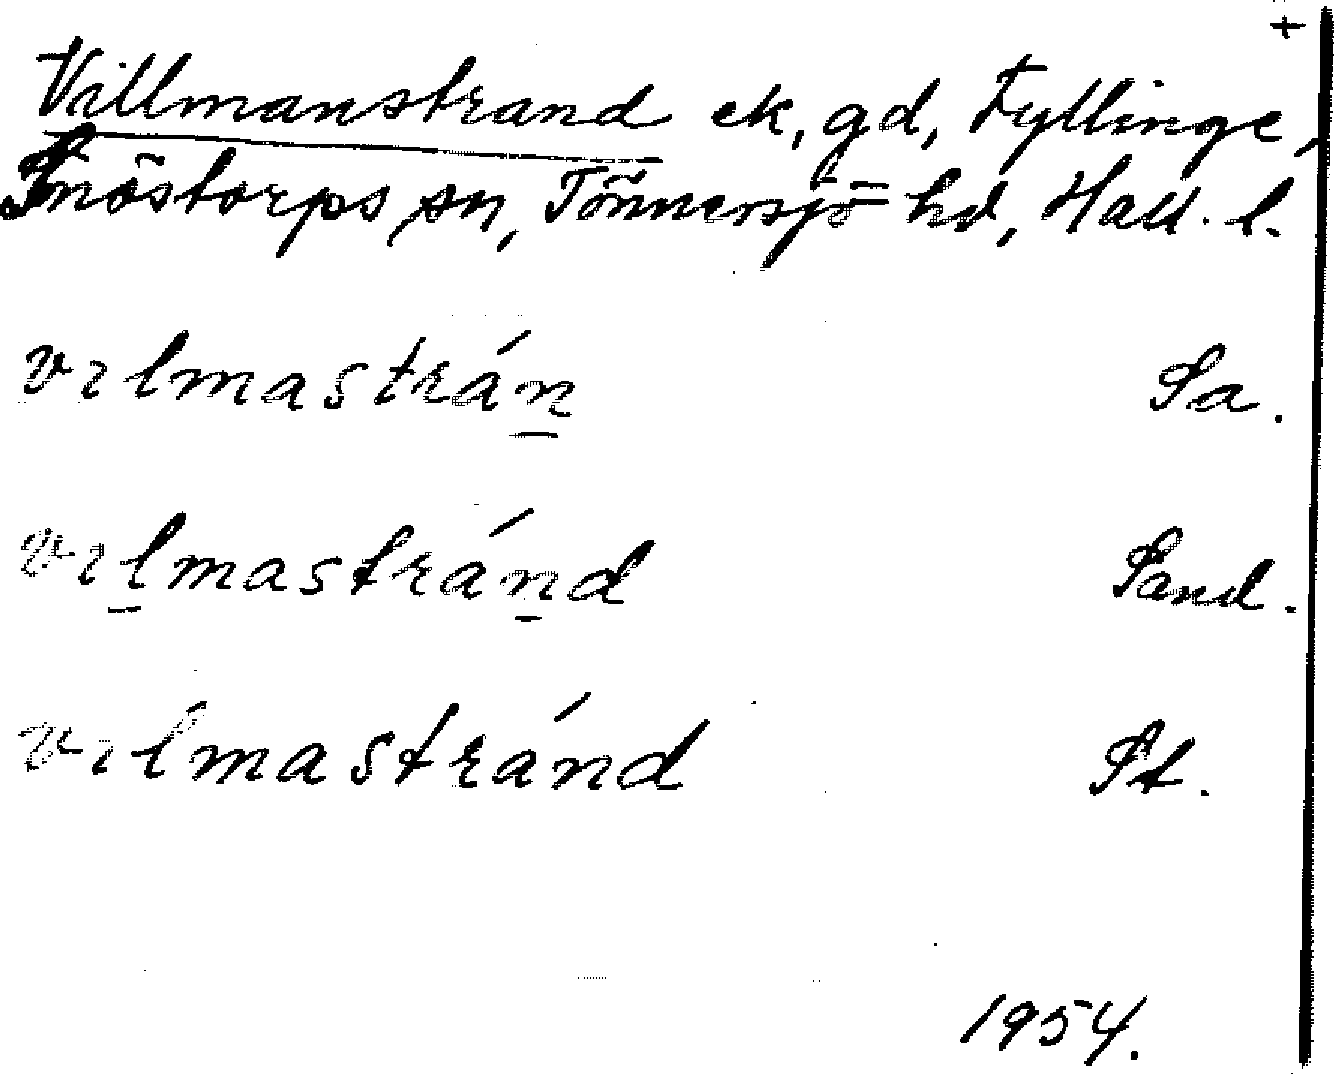 +
Villmanstrand ek, gd, Fyllinge,
Snöstorps sn, Tönnersjö hd, Hall. l.
vɩlmastrán̲ Sa.
vɩl̲mastrán̲d Sand.
vɩlmastránd St.
1954.